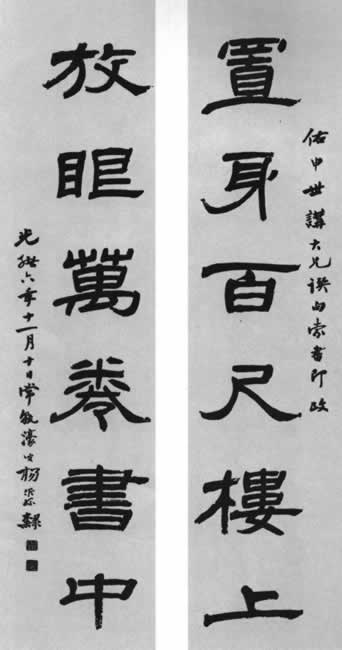 佑申世講大兄撰句索書即政
置身百尺樓上
放眼萬卷書中
光緒六年十一月十日常熟濠叟楊沂孫隸